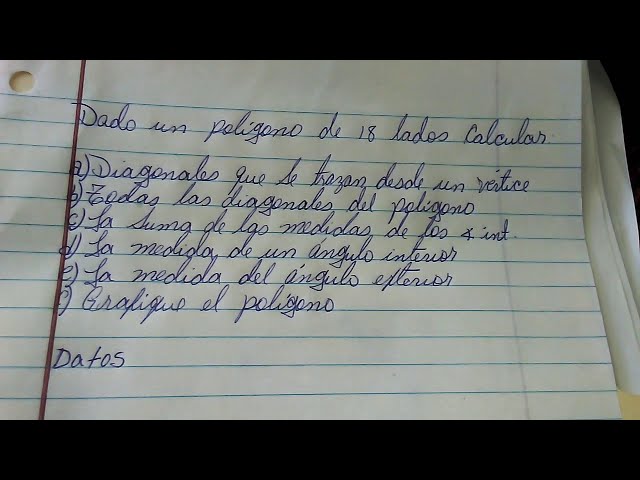 Dado un poligono de 18 lados Calcular.
a) Diagonales que se trazan desde un vértice
b) Todas las diagonales del poligono
c) La suma de las medidas de los ∢ int.
d) La medida de un ángulo interior
e) La medida del ángulo exterior
f) Grafique el polígono
Datos